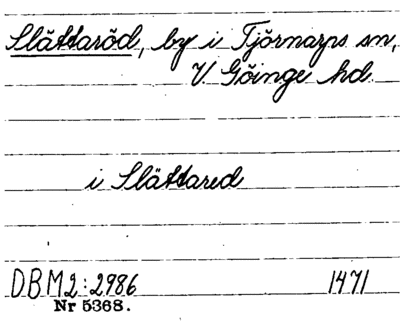 Slättaröd, by i Tjörnarps sn,
V Göinge hd.
i Slättared
DBM2:2986 1471
Nr 5368.